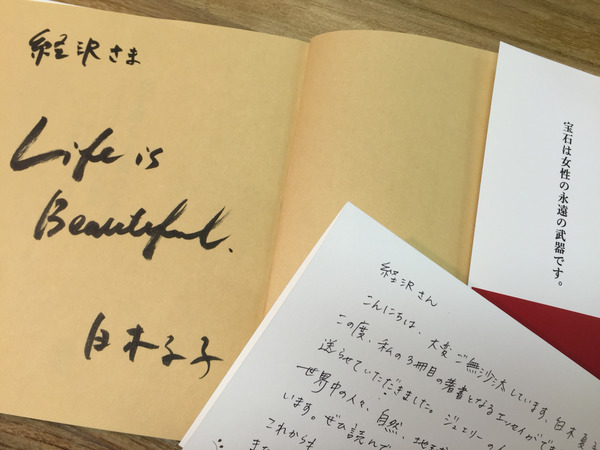 経沢さま
Life is
Beautiful.
白木子子
宝石は女性の永遠の武器です。
経沢さん
こんにちは、大変ご無沙汰しています、白木夏子
この度、私の3冊目の著書となるエッセイができ
送らせていただきました。ジュエリーの
世界中の人々、自然、地球
います。ぜひ読んで
これからも